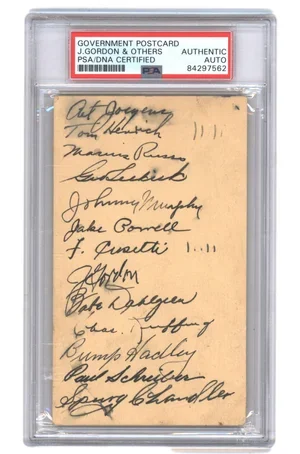 GOVERNMENT POSTCARD
J.GORDON & OTHERS AUTHENTIC
PSA/DNA CERTIFIED AUTO
PSA 84297562
Art Jorgens
Tom Henrich
Marius Russo
Johnny Murphy
Jake Powell
F. Crosetti
J Gordon
Babe Dahlgren
Chas. Ruffing
Bump Hadley
Paul Schreiber
Spurg Chandler